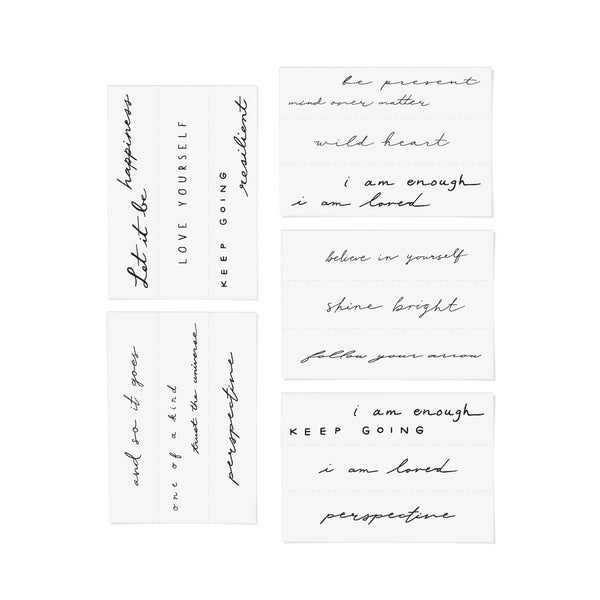 happiness
Let it be
LOVE YOURSELF
resilient
KEEP GOING
and so it goes
one of a kind
trust the universe
perspective
be present
mind over matter
wild heart
i am enough
i am loved
believe in yourself
shine bright
follow your arrow
i am enough
KEEP GOING
i am loved
perspective